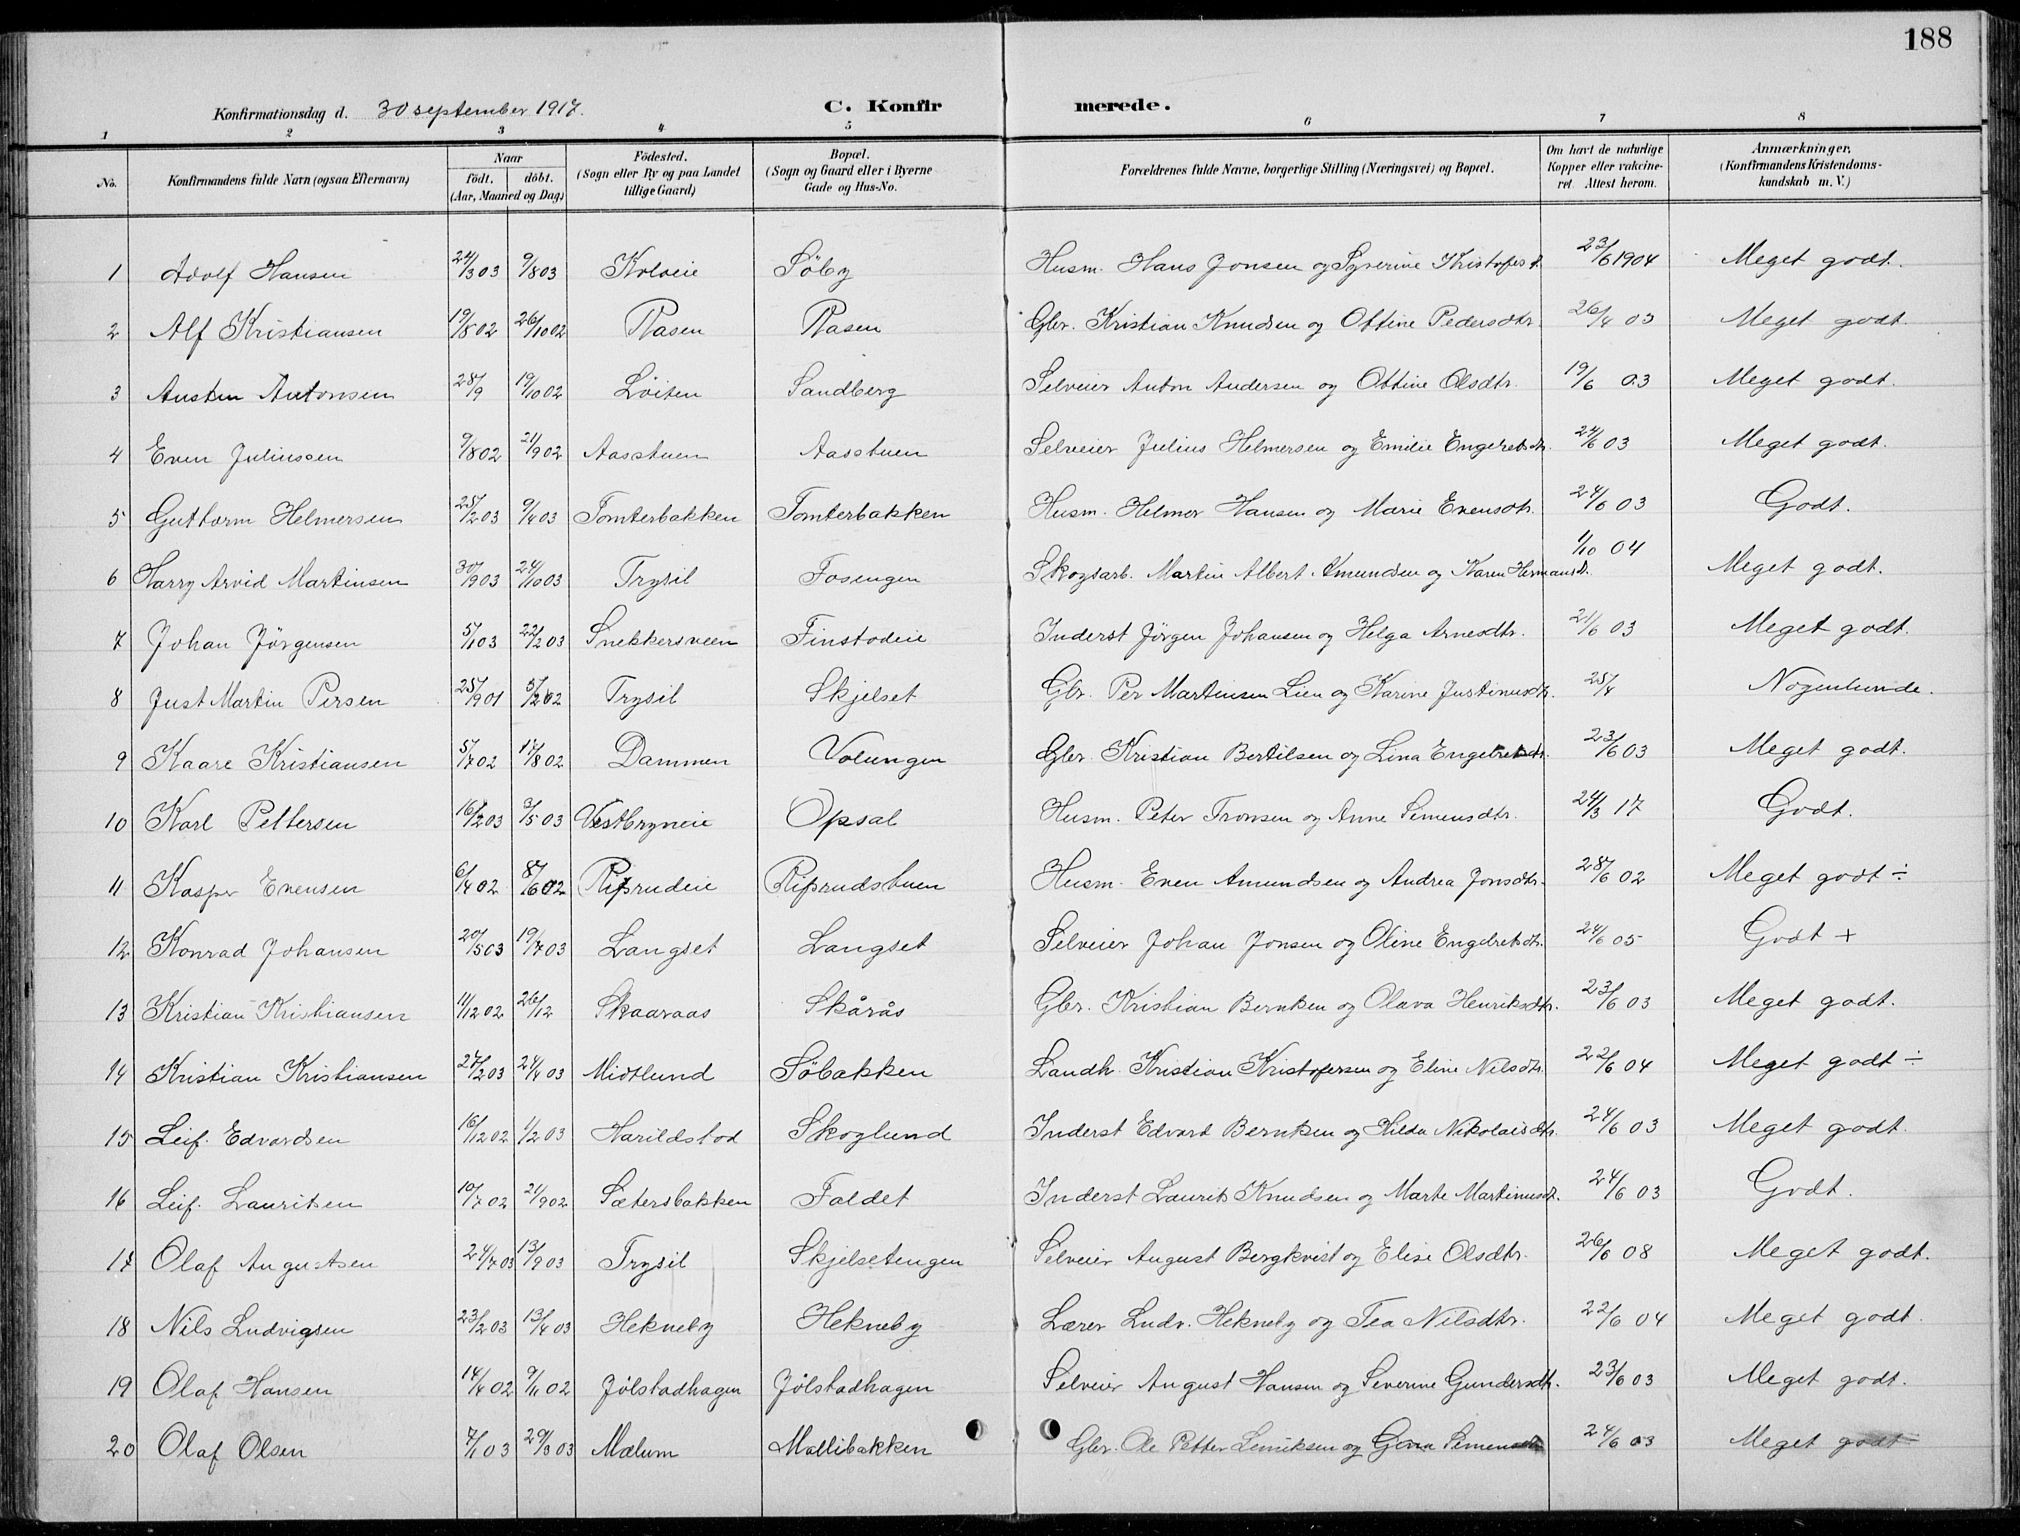 188
Konfirmationsdag d. 30 september 1917. C. Konfir merede.
1 2 3 4 5 6 7 8
No. Konfirmandens fulde Navn (ogsaa Efternavn) Naar födt. döbt. (Aar, Maaned og Dag) Födested. (Sogn eller By og paa Landet tillige Gaard) Bopæl. (Sogn og Gaard eller i Byerne Gade og Hus-No. Forældrenes fulde Navne, borgerlige Stilling (Næringsvei) og Bopæl. Om havt de naturlige Kopper eller vakcineret. Attest herom. Anmærkninger. (Konfirmandens Kristendomskundskab m. V.)
1 Adolf Hansen 24/3 03 9/8 03 Kolveie Söby Husm. Hans Jonsen og Syverine Kristofesd. 23/6 1904 Meget godt.
2 Alf Kristiansen 19/8 02 26/10 02 Rasen Rasen Gbr. Kristian Knudsen og Ottine Pedersdtr. 26/4 03 Meget godt.
3 Austen Antonsen 28/9 19/10 02 Löiten Sandberg Selveier Anton Andersen og Ottine Olsdtr. 19/6 03 Meget godt.
4 Even Juliussen 9/8 02 21/9 02 Aasstuen Aasstuen Selveier Julius Helmersen og Emilie Engebretsdtr. 24/6 03 Meget godt.
5 Guttorm Helmersen 25/2 03 9/4 03 Tomterbakken Tomterbakken Husm. Helmer Hansen og Marie Evensdtr. 24/6 03 Godt.
6 Harry Arvid Martinsen 30/9 03 24/10 03 Trysil Fosengen Skogsarb. Martin Albert Amundsen og Karen Hermansd. 1/10 04 Meget godt.
7 Johan Jörgensen 5/1 03 22/2 03 Snekkersveen Finstadeie Inderst Jörgen Johansen og Helga Arnesdtr. 21/6 03 Meget godt.
8 Just Martin Persen 25/9 01 5/2 02 Trysil Skjelset Gbr. Per Martinsen Lien og Karine Justinusdtr. 25/4 Nogenlunde.
9 Kaare Kristiansen 5/7 02 17/8 02 Dammen Volungen Gbr. Kristian Bertilsen og Lina Engebretsdtr. 23/6 03 Meget godt.
10 Karl Pettersen 16/2 03 3/5 03 Vestbryneie Opsal Husm. Peter Tronsen og Anne Simensdtr. 24/3 17 Godt.
11 Kasper Evensen 6/4 02 8/6 02 Risrudeie Risrudstuen Husm. Even Amundsen og Andrea Jonsdtr. 28/6 02 Meget godt ÷
12 Konrad Johansen 20/5 03 19/7 03 Langset Langset Selveier Johan Jonsen og Oline Engebretsdtr. 24/6 05 Godt +
13 Kristian Kristiansen 11/12 02 26/12 Skaaraas Skårås Gbr. Kristian Berntsen og Olava Henriksdtr. 23/6 03 Meget godt.
14 Kristian Kristiansen 27/2 03 24/4 03 Midtlund Söbakken Landh. Kristian Kristofersen og Eline Nilsdtr. 22/6 04 Meget godt ÷
15 Leif Edvardsen 16/12 02 1/2 03 Harildstad Skoglund Inderst Edvard Berntsen og Hilda Nikolaisdtr. 24/6 03 Meget godt.
16 Leif Lauritsen 10/7 02 21/9 02 Sætersbakken Faldet Inderst Laurits Knudsen og Marte Martinusdt. 24/6 03 Godt.
17 Olaf Augustsen 24/7 03 13/9 03 Trysil Skjelsetengen Selveier August Bergkvist og Elise Olsdtr. 26/6 08 Meget godt.
18 Nils Ludvigsen 23/2 03 13/4 03 Hekneby Hekneby Lærer Ludv. Hekneby og Tea Nilsdtr. 22/6 04 Meget godt.
19 Olaf Hansen 14/4 02 9/11 02 Jölstadhagen Jölstadhagen Selveier August Hansen og Severine Gundersdtr. 23/6 03 Meget godt.
20 Olaf Olsen 7/1 03 29/3 03 Mælum Mællibakken Gbr. Ole Petter Lenriksen og Gina Simensdtr 24/6 03 Meget godt